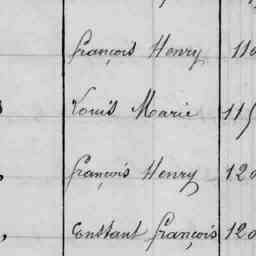 françois Henry 110
Louis Marie 115
françois Henry 120
Constant françois 120